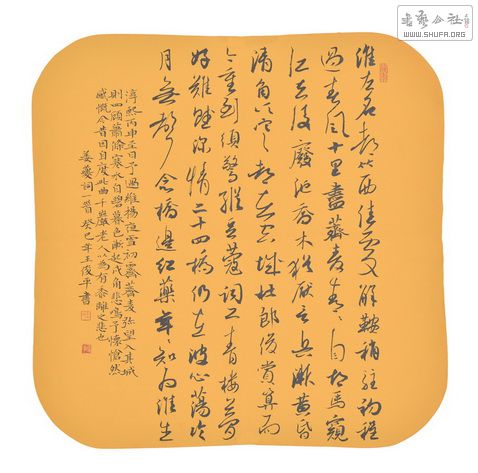 书艺公社
WWW.SHUFA.ORG
淮左名都竹西佳處解鞍稍駐初程
過春風十里盡薺麥青青自胡馬窺
江去後廢池喬木猶厭言兵漸黃昏
清角吹寒都在空城杜郎俊賞算而
今重到須驚縱豆蔻詞工青樓夢
好難賦深情二十四橋仍在波心蕩冷
月無聲念橋邊紅藥年年知為誰生
淳熙丙申至日予過維揚夜雪初霽薺麥彌望入其城
則四顧蕭條寒水自碧暮色漸起戍角悲鳴予懷愴然
感慨今昔因自度此曲千巖老人以為有黍離之悲也
姜夔詞一首癸巳年王俊平書